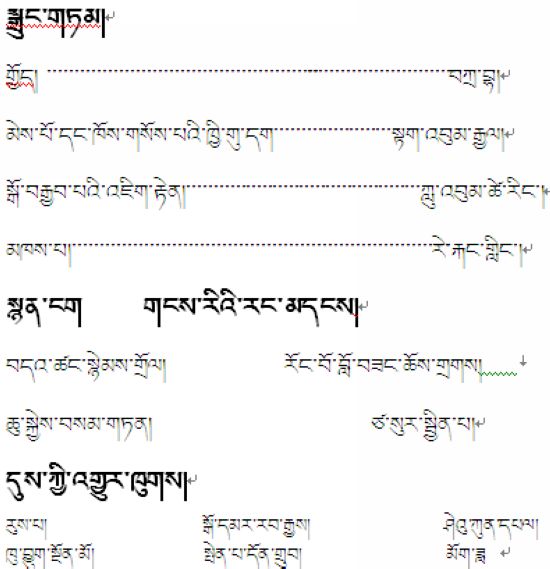 སྒྲུང་གཏམ།
གྱོད། ------------------------------------------------བཀྲ་བྷ།
མེས་པོ་དང་ཁོས་གསོས་པའི་ཁྱི་གུ་དག--------------སྟག་འབུམ་རྒྱལ།
སྒོ་བརྒྱབ་པའི་འཇིག་རྟེན།----------------------------ཀླུ་འབུམ་ཚེ་རིང་།
མཁས་པ།-------------------------------------------རེ་རྐང་གླིང་།
སྙན་ངག གངས་རིའི་རང་མདངས།
བདའ་ཚང་སྙེམས་གྲོལ། རོང་བོ་བློ་བཟང་ཆོས་གྲགས།
ཆུ་སྐྱེས་བསམ་གཏན། ཙ་སུར་སྦྱིན་པ།
དུས་ཀྱི་འགྱུར་ཁུགས།
རུས་པ། སྒོ་དམར་རབ་རྒྱས། ཤེའུ་ཀུན་དཔལ།
ཁུ་བྱུག་སྔོན་མོ། སྤེན་པ་དོན་གྲུབ། མོག་ཟླ